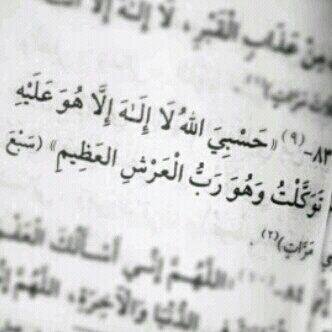 مِنْ عَذَابِ الْقَبْرِ، لَا إِلَهَ إِلَّا
٨٣-(٩) «حَسْبِيَ اللهُ لَا إِلَهَ إِلَّا هُوَ عَلَيْهِ
تَوَكَّلْتُ وَهُوَ رَبُّ الْعَرْشِ الْعَظِيمِ» (سَبْعَ
مَرَّاتٍ)(٢).
٨٤-(١٠) «اللَّهُمَّ إِنِّي أَسْأَلُكَ الْعَفْوَ
الدُّنْيَا وَالْآخِرَةِ، اللَّهُمَّ إِنِّي